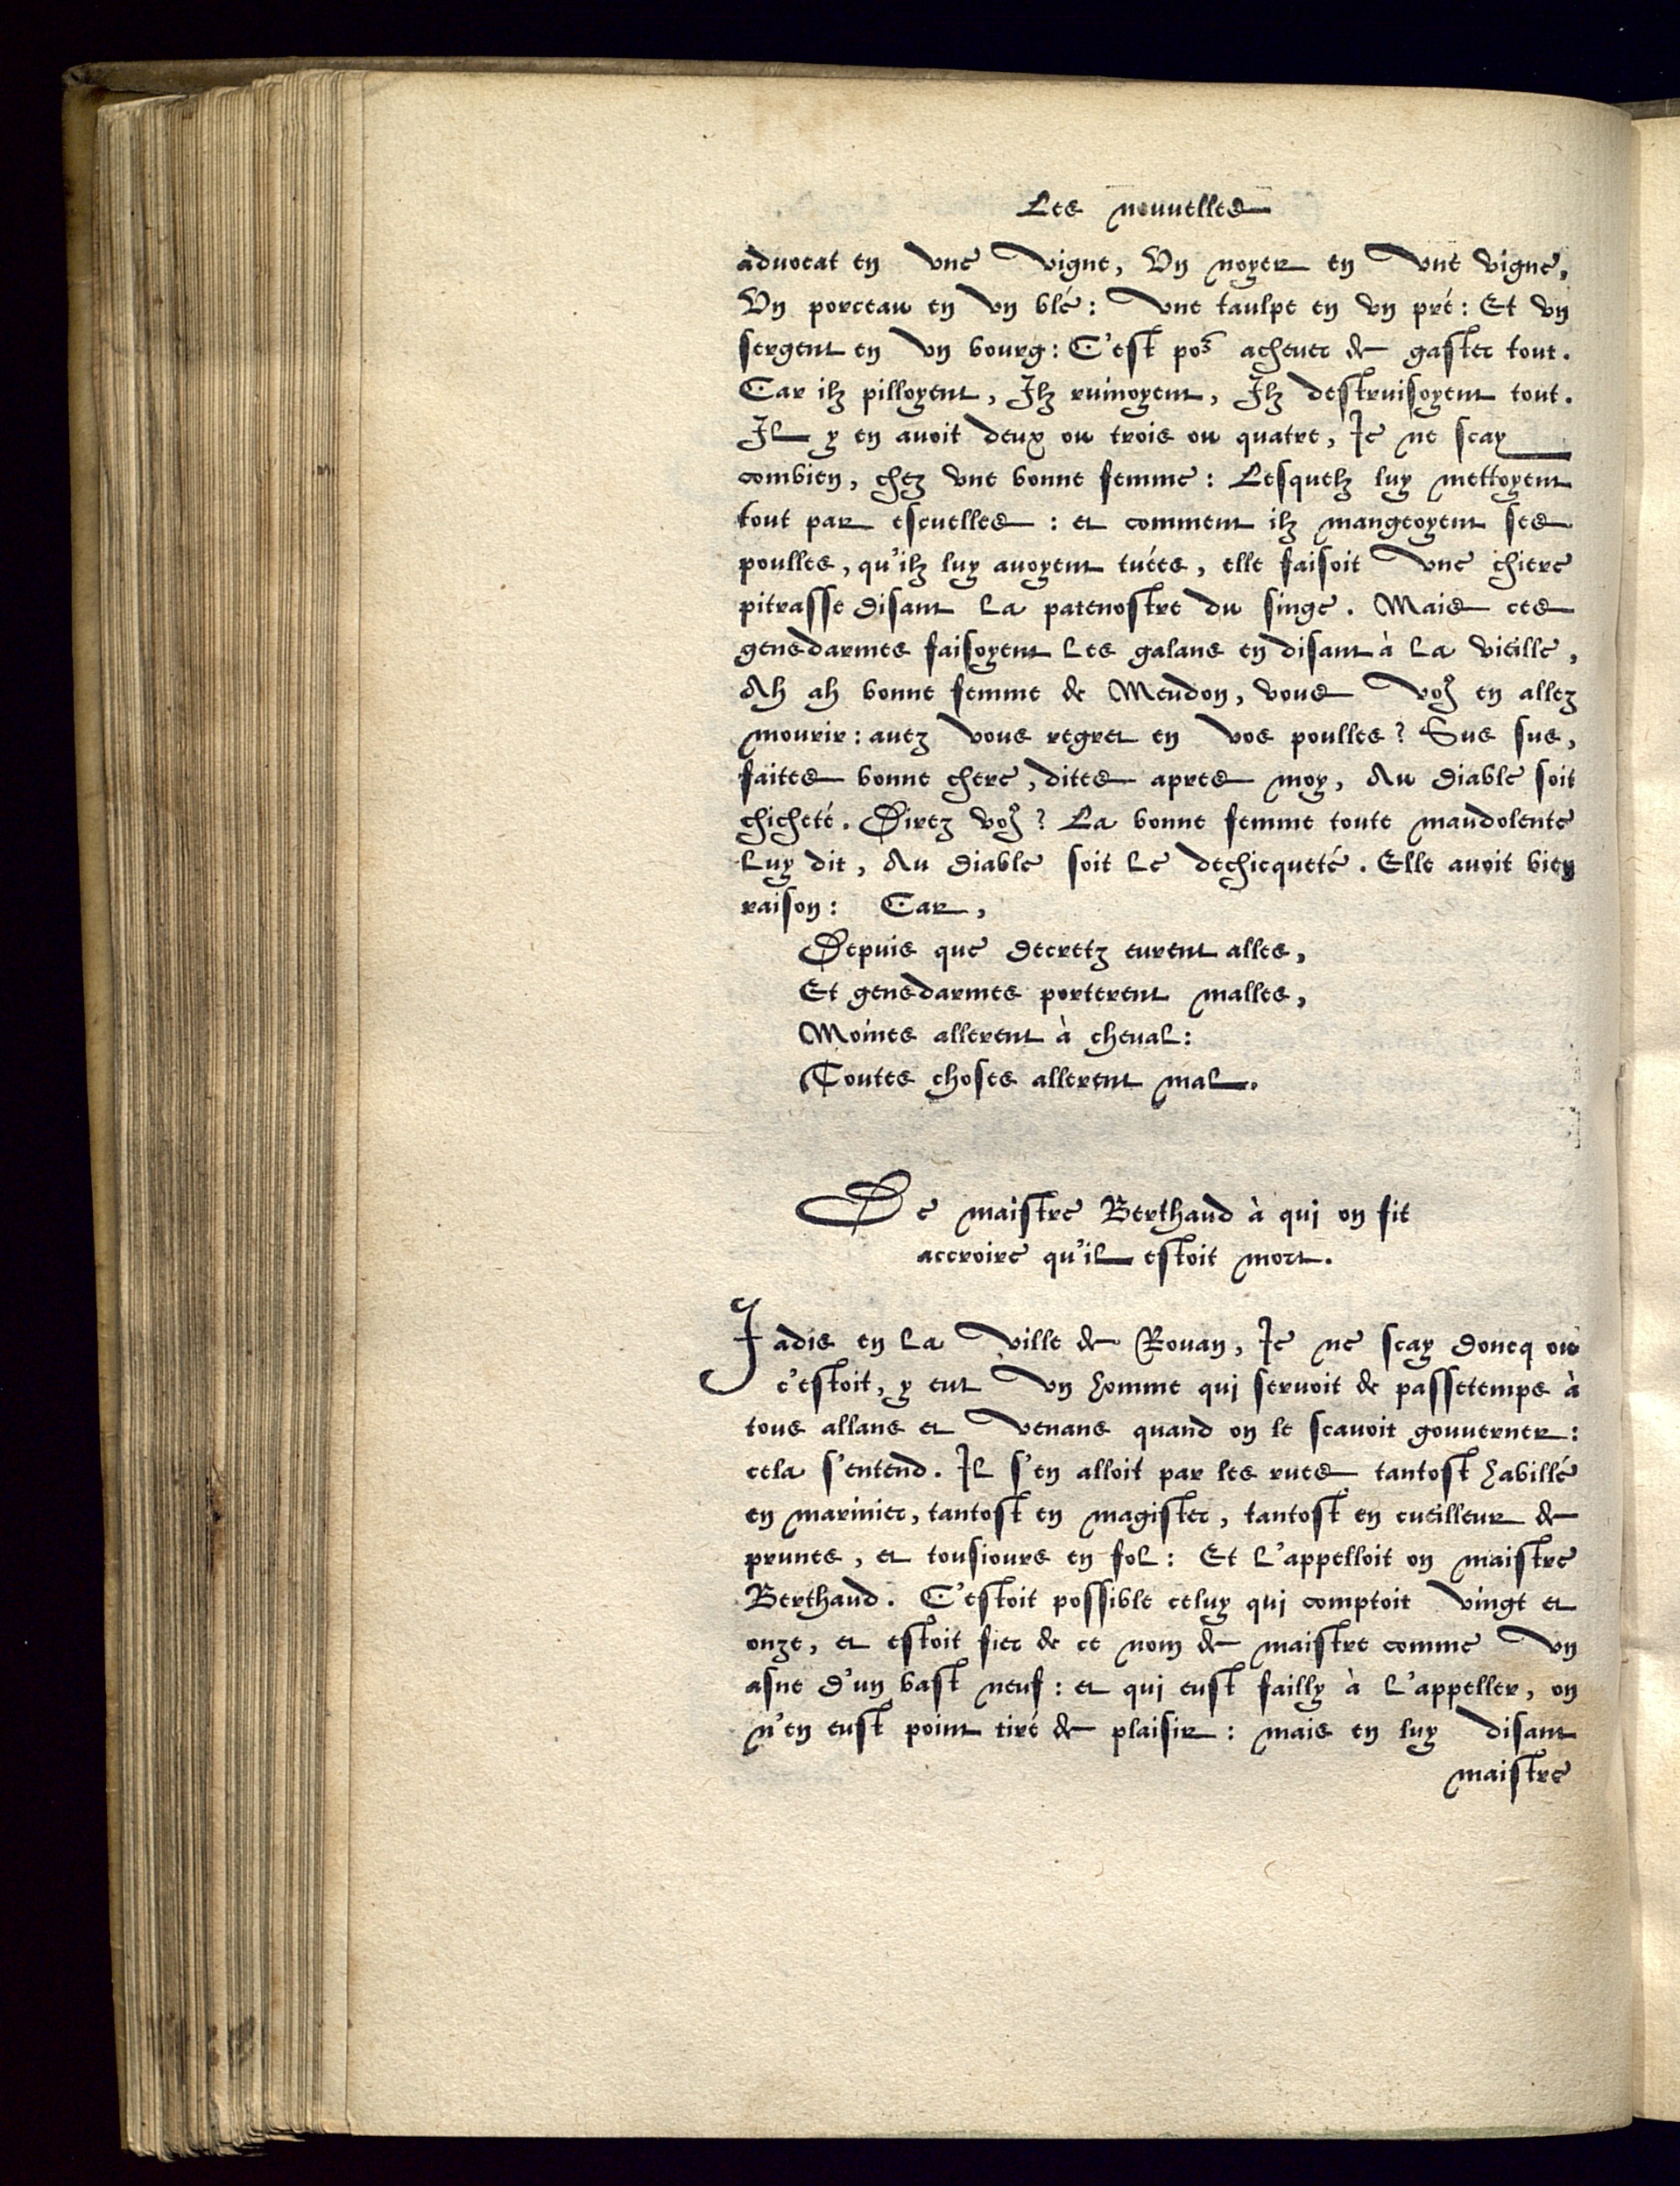 Les nouuelles
aduocat en vne vigne, Vn noyer en vne vigne,
Vn porceau en vn blé: vne taulpe en vn pré: Et vn
sergent en vn bourg: C'est pour acheuer de gaster tout.
Car ilz pilloyent, Ilz ruinoyent, Ilz destruisoyent tout.
Il y en auoit deux ou trois ou quatre, Ie ne scay
combien, chez vne bonne femme: Lesquelz luy mettoyent
tout par escuelles: et comment ilz mangeoyent ses
poulles, qu'ilz luy auoyent tuées, elle faisoit vne chiere
pitrasse disant la patenostre du singe. Mais ces
gensdarmes faisoyent les galans en disant à la vieille,
Ah ah bonne femme de Meudon, vous vous en allez
mourir: auez vous regret en vos poulles? Sus sus,
faites bonne chere, dites apres moy, Au diable soit
chicheté. Direz vous? La bonne femme toute maudolente
luy dit, Au diable soit le dechicqueté. Elle auoit bien
raison: Car,
Depuis que decretz eurent alles,
Et gensdarmes porterent malles,
Moines allerent à cheual:
Toutes choses allerent mal.
De maistre Berthaud à qui on fit
accroire qu'il estoit mort.
Iadis en la ville de Rouan, Ie ne scay doncq ou
c'estoit, y eut vn homme qui seruoit de passetemps à
tous allans et venans quand on le scauoit gouuerner:
cela s'entend. Il s'en alloit par les rues tantost habillé
en marinier, tantost en magister, tantost en cueilleur de
prunes, et tousiours en fol: Et l'appelloit on maistre
Berthaud. C'estoit possible celuy qui comptoit vingt et
onze, et estoit fier de ce nom de maistre comme vn
asne d'un bast neuf: et qui eust failly à l'appeller, on
n'en eust point tiré de plaisir: mais en luy disant
maistre